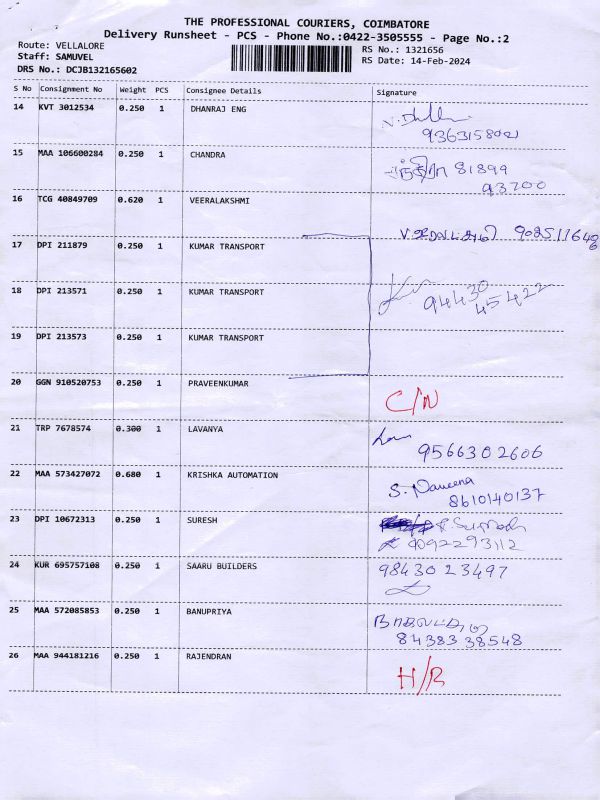 THE PROFESSIONAL COURIERS, COIMBATORE
Delivery Runsheet - PCS - Phone No.:0422-3505555 - Page No.:2
Route: VELLALORE
Staff: SAMUVEL
DRS No.: DCJB132165602
RS No.: 1321656
RS Date: 14-Feb-2024
S No Consignment No Weight PCS Consignee Details Signature
14 KVT 3012534 0.250 1 DHANRAJ ENG
936315802
15 MAA 106600284 0.250 1 CHANDRA
81899
93700
16 TCG 40849709 0.620 1 VEERALAKSHMI
17 DPI 211879 0.250 1 KUMAR TRANSPORT
18 DPI 213571 0.250 1 KUMAR TRANSPORT
94430
45422
19 DPI 213573 0.250 1 KUMAR TRANSPORT
20 GGN 910520753 0.250 1 PRAVEENKUMAR
C/N
21 TRP 7678574 0.300 1 LAVANYA
9566302606
22 MAA 573427072 0.680 1 KRISHKA AUTOMATION
S. Naveena
8610140137
23 DPI 10672313 0.250 1 SURESH
24 KUR 695757108 0.250 1 SAARU BUILDERS
98430 23497
25 MAA 572085853 0.250 1 BANUPRIYA
84383 38548
26 MAA 944181216 0.250 1 RAJENDRAN
H/R